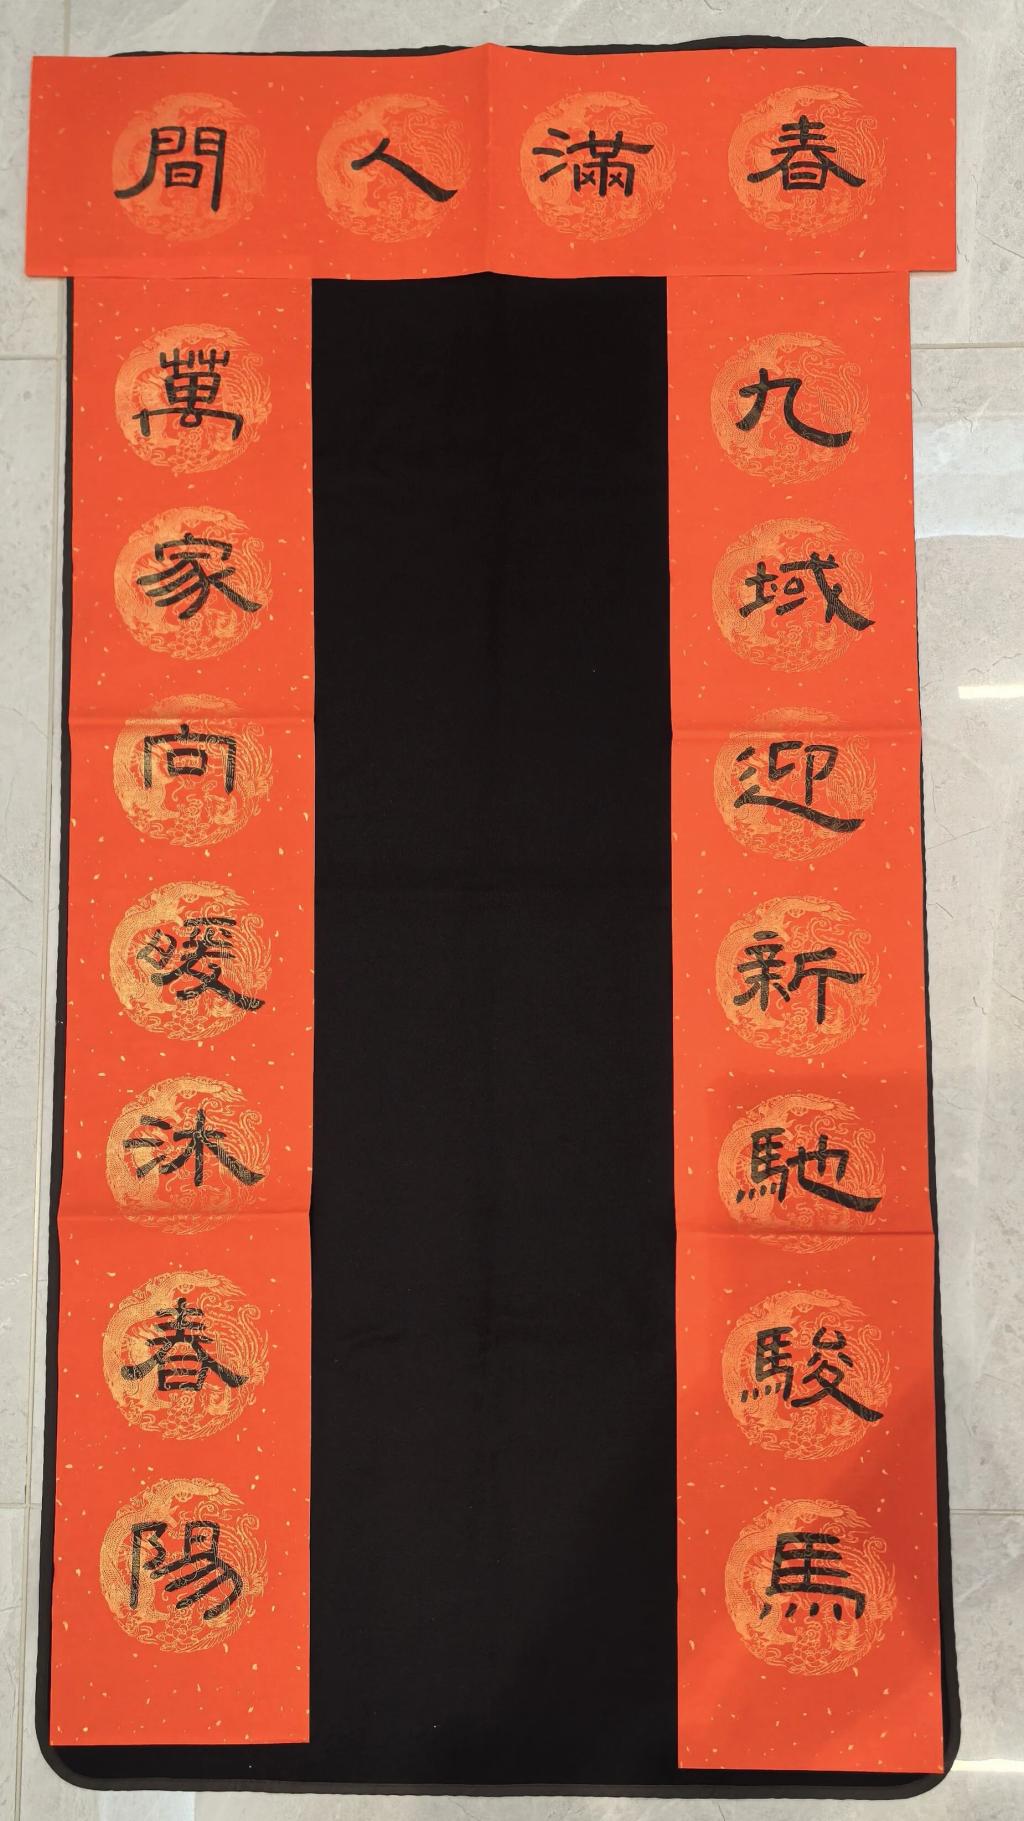 春滿人間
九域迎新馳駿馬
萬家向暖沐春陽